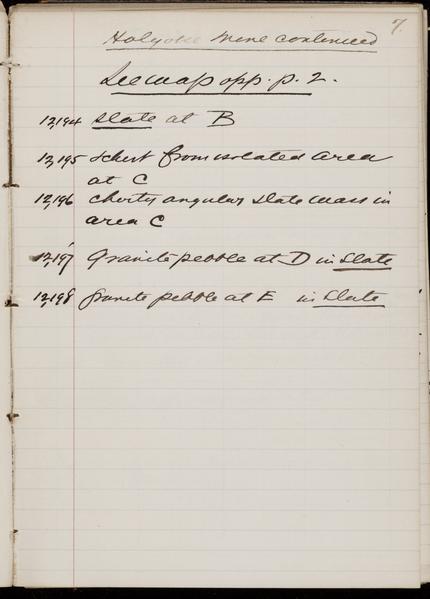 7.
Holyoke Mine continued
See map opp. p. 2.
12,194 slate at B
12,195 schist from isolated area
at C
12,196 cherty angular slate mass in
area C
12,197 Granite pebble at D in slate
12,198 granite pebble at E in slate